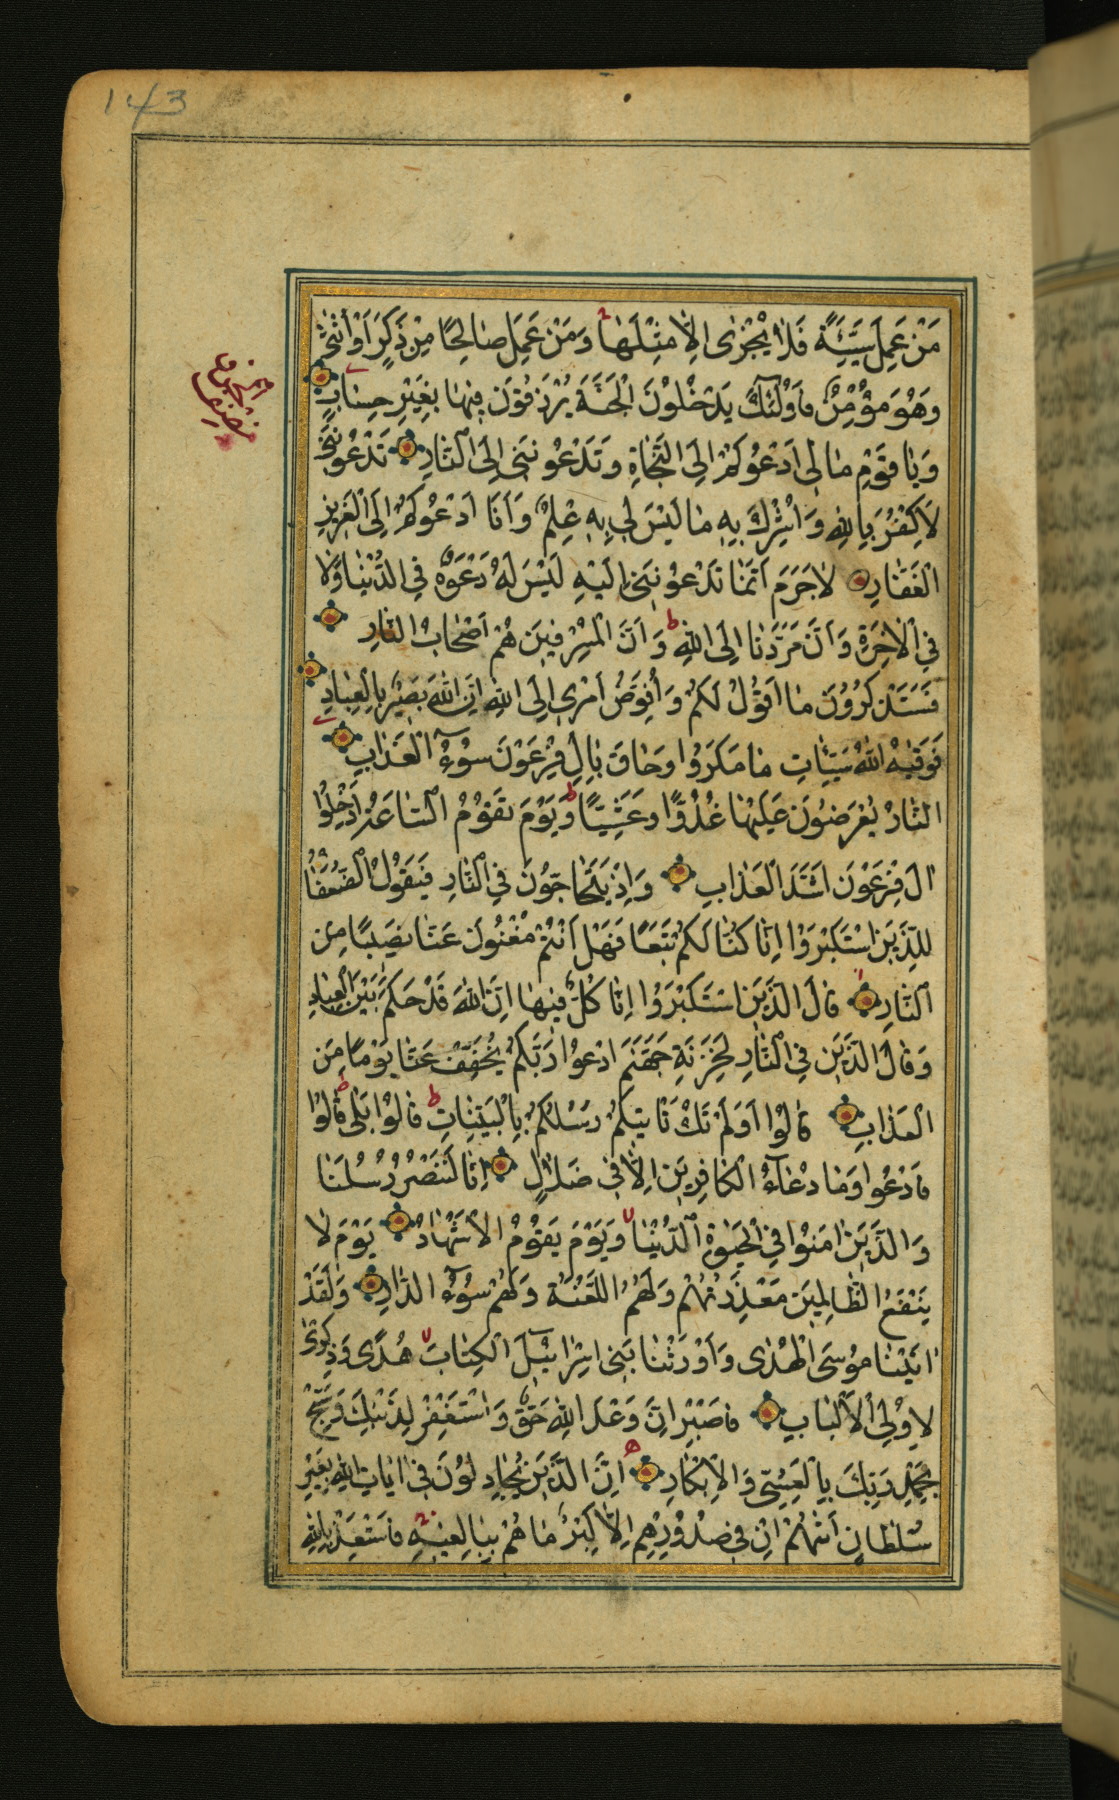 143
مَنْ عَمِلَ سَيِّئَةً فَلَا يُجْزٰى اِلَّا مِثْلَهَا وَمَنْ عَمِلَ صَالِحًا مِنْ ذَكَرٍ اَوْ اُنْثٰى
وَهُوَ مُؤْمِنٌ فَاُولٰئِكَ يَدْخُلُونَ الْجَنَّةَ يُرْزَقُونَ فِيهَا بِغَيْرِ حِسَابٍ
وَيَا قَوْمِ مَا لِى اَدْعُوكُمْ اِلَى النَّجَاةِ وَتَدْعُونَنِى اِلَى النَّارِ تَدْعُونَنِى
لِاَكْفُرَ بِاللّٰهِ وَاُشْرِكَ بِهِ مَا لَيْسَ لِى بِهِ عِلْمٌ وَاَنَا اَدْعُوكُمْ اِلَى الْعَزِيزِ
الْغَفَّارِ لَا جَرَمَ اَنَّمَا تَدْعُونَنِى اِلَيْهِ لَيْسَ لَهُ دَعْوَةٌ فِى الدُّنْيَا وَلَا
فِى الْاٰخِرَةِ وَاَنَّ مَرَدَّنَا اِلَى اللّٰهِ وَاَنَّ الْمُسْرِفِينَ هُمْ اَصْحَابُ النَّارِ
فَسَتَذْكُرُونَ مَا اَقُولُ لَكُمْ وَاُفَوِّضُ اَمْرِى اِلَى اللّٰهِ اِنَّ اللّٰهَ بَصِيرٌ بِالْعِبَادِ
فَوَقٰيهُ اللّٰهُ سَيِّئَاتِ مَا مَكَرُوا وَحَاقَ بِاٰلِ فِرْعَوْنَ سُوءُ الْعَذَابِ
النَّارُ يُعْرَضُونَ عَلَيْهَا غُدُوًّا وَعَشِيًّا وَيَوْمَ تَقُومُ السَّاعَةُ اَدْخِلُوا
اٰلَ فِرْعَوْنَ اَشَدَّ الْعَذَابِ وَاِذْ يَتَحَاجُّونَ فِى النَّارِ فَيَقُولُ الضُّعَفَاءُ
لِلَّذِينَ اسْتَكْبَرُوا اِنَّا كُنَّا لَكُمْ تَبَعًا فَهَلْ اَنْتُمْ مُغْنُونَ عَنَّا نَصِيبًا مِنَ
النَّارِ قَالَ الَّذِينَ اسْتَكْبَرُوا اِنَّا كُلٌّ فِيهَا اِنَّ اللّٰهَ قَدْ حَكَمَ بَيْنَ الْعِبَادِ
وَقَالَ الَّذِينَ فِى النَّارِ لِخَزَنَةِ جَهَنَّمَ ادْعُوا رَبَّكُمْ يُخَفِّفْ عَنَّا يَوْمًا مِنَ
الْعَذَابِ قَالُوا اَوَلَمْ تَكُ تَاْتِيكُمْ رُسُلُكُمْ بِالْبَيِّنَاتِ قَالُوا بَلٰى قَالُوا
فَادْعُوا وَمَا دُعَاءُ الْكَافِرِينَ اِلَّا فِى ضَلَالٍ اِنَّا لَنَنْصُرُ رُسُلَنَا
وَالَّذِينَ اٰمَنُوا فِى الْحَيٰوةِ الدُّنْيَا وَيَوْمَ يَقُومُ الْاَشْهَادُ يَوْمَ لَا
يَنْفَعُ الظَّالِمِينَ مَعْذِرَتُهُمْ وَلَهُمُ اللَّعْنَةُ وَلَهُمْ سُوءُ الدَّارِ وَلَقَدْ
اٰتَيْنَا مُوسَى الْهُدٰى وَاَوْرَثْنَا بَنِى اِسْرَائِيلَ الْكِتَابَ هُدًى وَذِكْرٰى
لِاُولِى الْاَلْبَابِ فَاصْبِرْ اِنَّ وَعْدَ اللّٰهِ حَقٌّ وَاسْتَغْفِرْ لِذَنْبِكَ وَسَبِّحْ
بِحَمْدِ رَبِّكَ بِالْعَشِىِّ وَالْاِبْكَارِ اِنَّ الَّذِينَ يُجَادِلُونَ فِى اٰيَاتِ اللّٰهِ بِغَيْرِ
سُلْطَانٍ اَتٰيهُمْ اِنْ فِى صُدُورِهِمْ اِلَّا كِبْرٌ مَا هُمْ بِبَالِغِيهِ فَاسْتَعِذْ بِاللّٰهِ